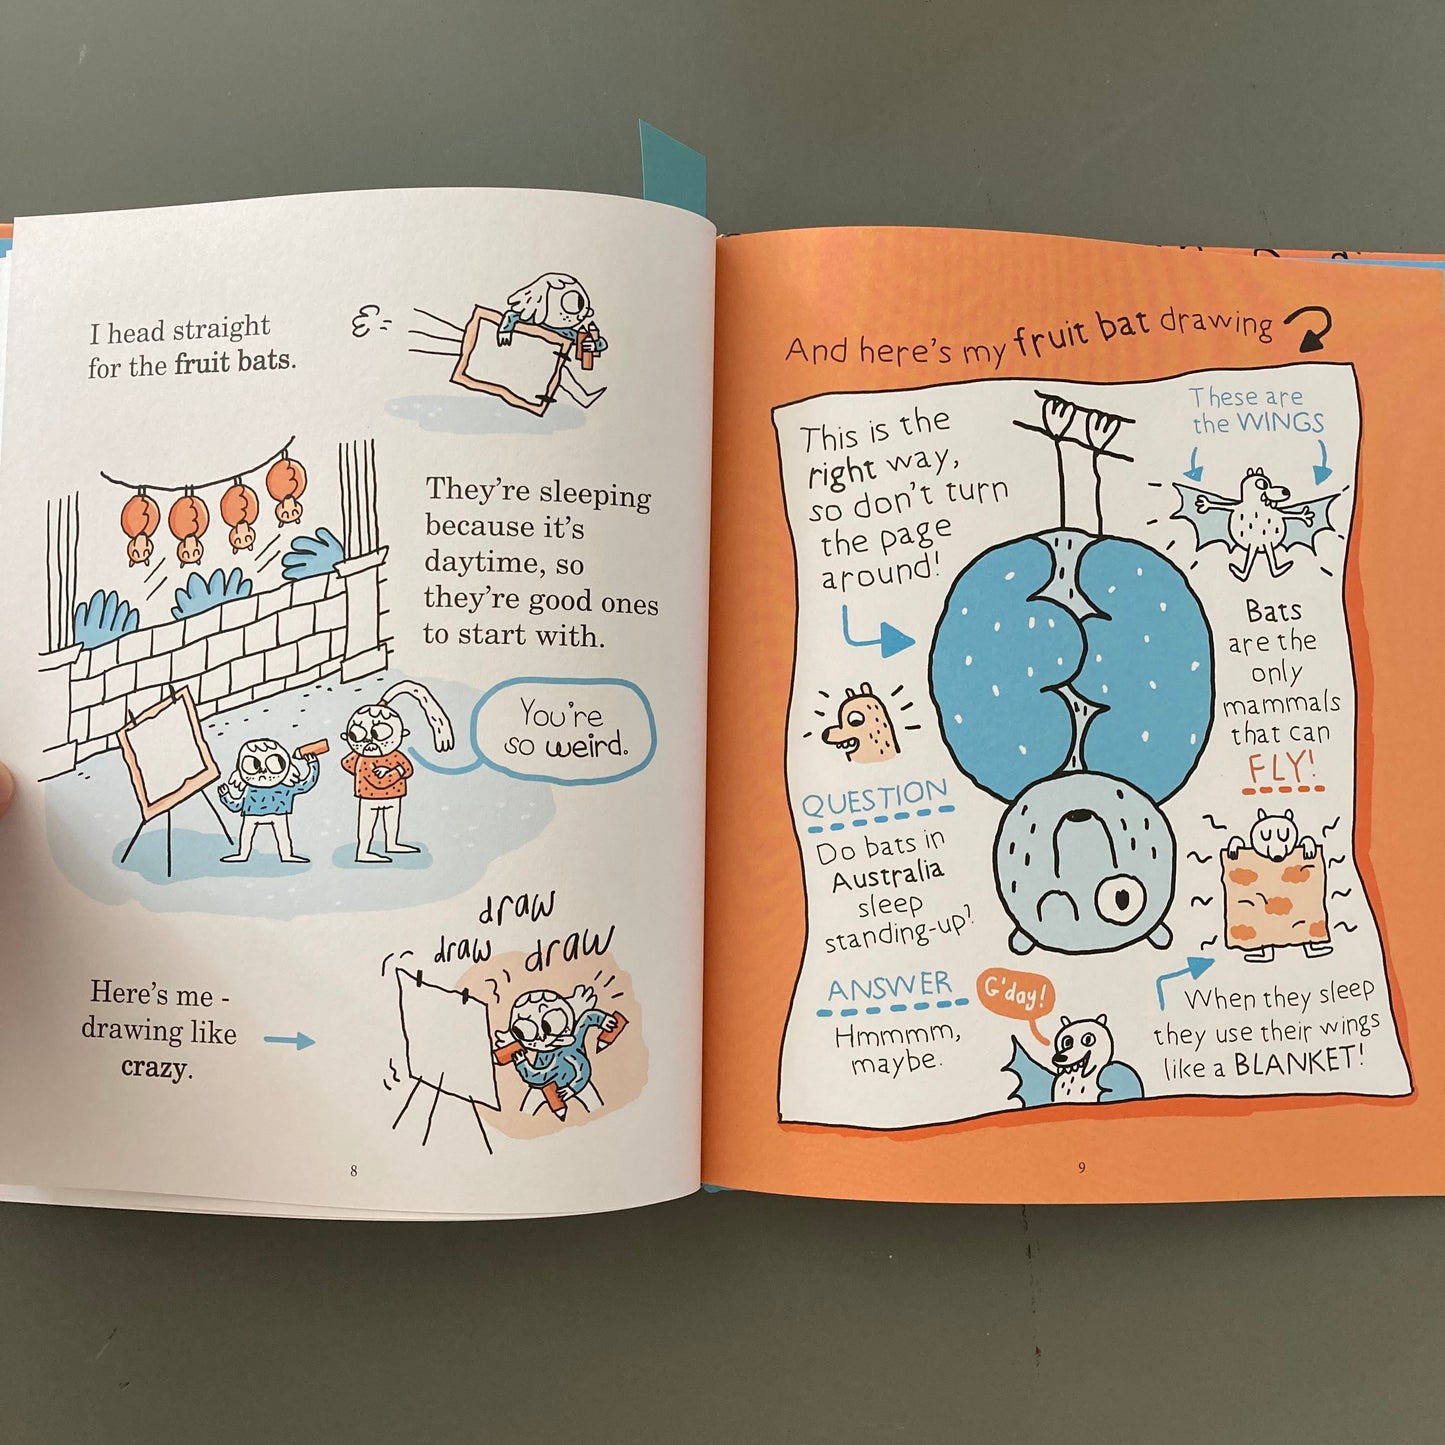 I head straight
for the fruit bats.
They're sleeping
because it's
daytime, so
they're good ones
to start with.
You're
so weird.
draw
draw draw
Here's me -
drawing like
crazy.
8
And here's my fruit bat drawing
This is the
right way,
so don't turn
the page
around!
These are
the WINGS
Bats
are the
only
mammals
that can
FLY!
QUESTION
Do bats in
Australia
sleep
standing-up?
ANSWER
Hmmmm,
maybe.
G'day!
When they sleep
they use their wings
like a BLANKET!
9